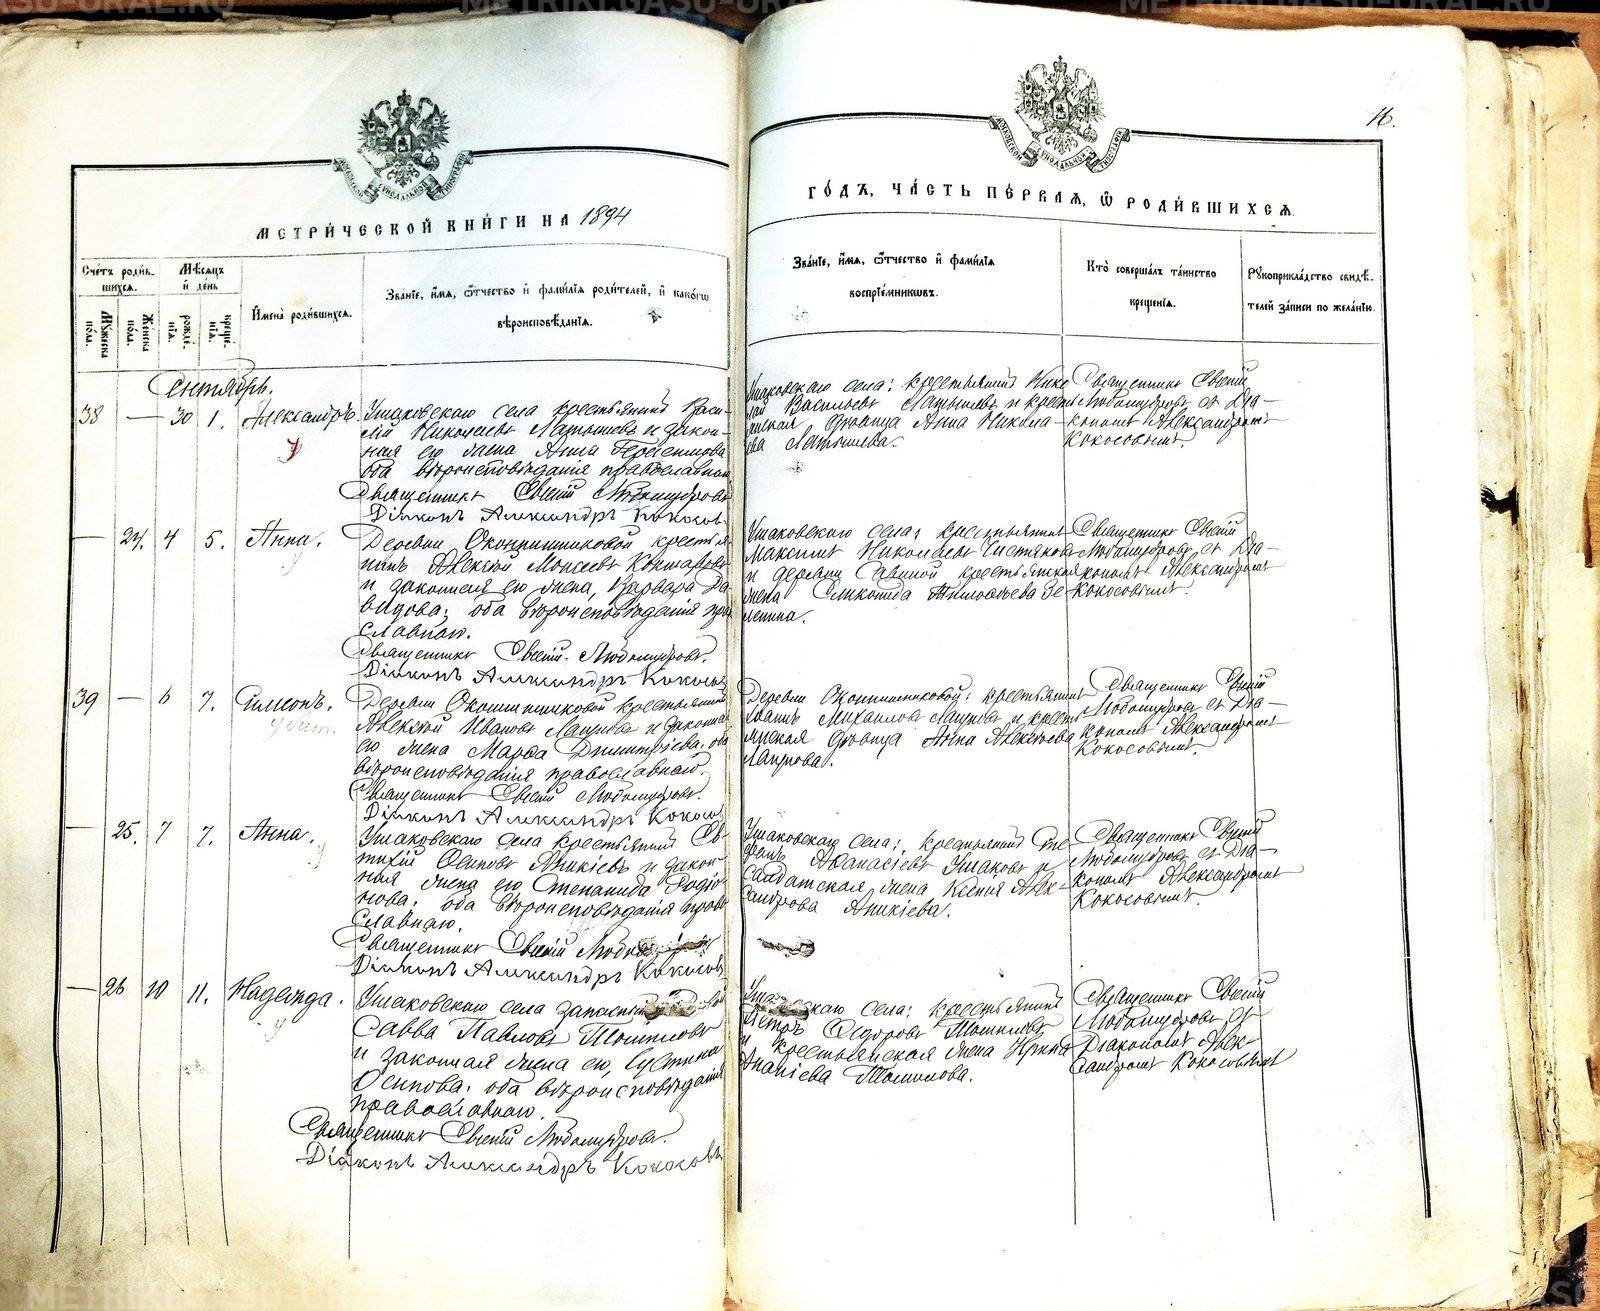 METRIKI.GASU-URAL.RU
METRIKI.GASU-URAL.RU
16.
МЕТРИ́ЧЕСКОЙ КНИ́ГИ НА 1894
ГО́ДЪ, ЧА́СТЬ ПЕ́РВАѦ, Ѽ РОДИ́ВШИХСѦ.
Сче́тъ роди́в-
шихсѧ.
Му́жеска
пола.
Же́нска
пола.
Мѣ́сѧцъ
и҆ де́нь
рожде́-
нїѧ.
креще́-
нїѧ.
И҆мена̀ роди́вшихсѧ.
Зва́нїе, и҆́мѧ, ѻ҆́тчество и҆ фами́лїѧ роди́телей, и҆ како́гѡ
вѣроисповѣ́данїѧ.
Зва́нїе, и҆́мѧ, ѻ҆́тчество и҆ фами́лїѧ
воспрїе́мникѡвъ.
Кто̀ соверша́лъ та́инство
креще́нїѧ.
Рꙋкоприкла́дство свидѣ́-
телей за́писи по жела́нїю.
Сентябрь.
38 — 30 1. Александръ.
Ушаковскаго села крестьянинъ Васи-
лій Николаевъ Латышевъ и закон-
ная его жена Анна
оба вѣроисповѣданія православнаго
Священникъ Евгеній Любомудровъ
Діаконъ Александръ Кокосовъ
Ушаковскаго села: крестьянинъ Нико
лай Васильевъ Латышевъ и кресть
янская дѣвица Анна Никола-
ева Латышева.
Священникъ Евгеній
Любомудровъ съ Діа-
кономъ Александромъ
Кокосовымъ.
— 24. 4 5. Анна.
Деревни крестья
нинъ Алексѣй Моисеевъ
и законная его жена, Варвара Да-
видова; оба вѣроисповѣданія право
славнаго.
Священникъ Евгеній Любомудровъ.
Діаконъ Александръ Кокосовъ
Ушаковскаго села; крестьянинъ
Максимъ Николаевъ Чистяковъ
и деревни крестьянская
жена
Священникъ Евгеній
Любомудровъ съ Діа-
кономъ Александромъ
Кокосовымъ.
39 — 6 7. Симеонъ.
Деревни крестьянинъ
Алексѣй Ивановъ и законная
его жена Марѳа Димитріева. оба
вѣроисповѣданія православнаго.
Священникъ Евгеній Любомудровъ.
Діаконъ Александръ Кокосовъ
Деревни крестьянинъ
Иванъ Михаиловъ и кресть
янская дѣвица Анна Алексѣева
Священникъ Евгеній
Любомудровъ съ Діа-
кономъ Александромъ
Кокосовымъ.
— 25. 7 7. Анна.
Ушаковскаго села крестьянинъ Ев-
тихій Осиповъ Аникіевъ и закон-
ная жена его Степанида Родіо-
нова: оба вѣроисповѣданія право
славнаго.
Священникъ Евгеній
Діаконъ Александръ Кокосовъ
Ушаковскаго села; крестьянинъ
Аѳанасіевъ Ушаковъ и
солдатская жена Ксенія Алек-
сандрова Аникіева.
Священникъ Евгеній
Любомудровъ съ Діа-
кономъ Александромъ
Кокосовымъ.
— 26 10 11. Надежда.
Ушаковскаго села
Савва Павловъ Томиловъ
и законная жена его, Іустина
Осипова. оба вѣроисповѣданія
православнаго.
Священникъ Евгеній Любомудровъ.
Діаконъ Александръ Кокосовъ
села; крестьянинъ
Петръ Ѳедоровъ Томиловъ
и крестьянская жена Ирина
Ананіева Томилова.
Священникъ Евгеній
Любомудровъ съ
Діакономъ Алек-
сандромъ Кокосовымъ
METRIKI.GASU-URAL.RU
METRIKI.GASU-URAL.RU